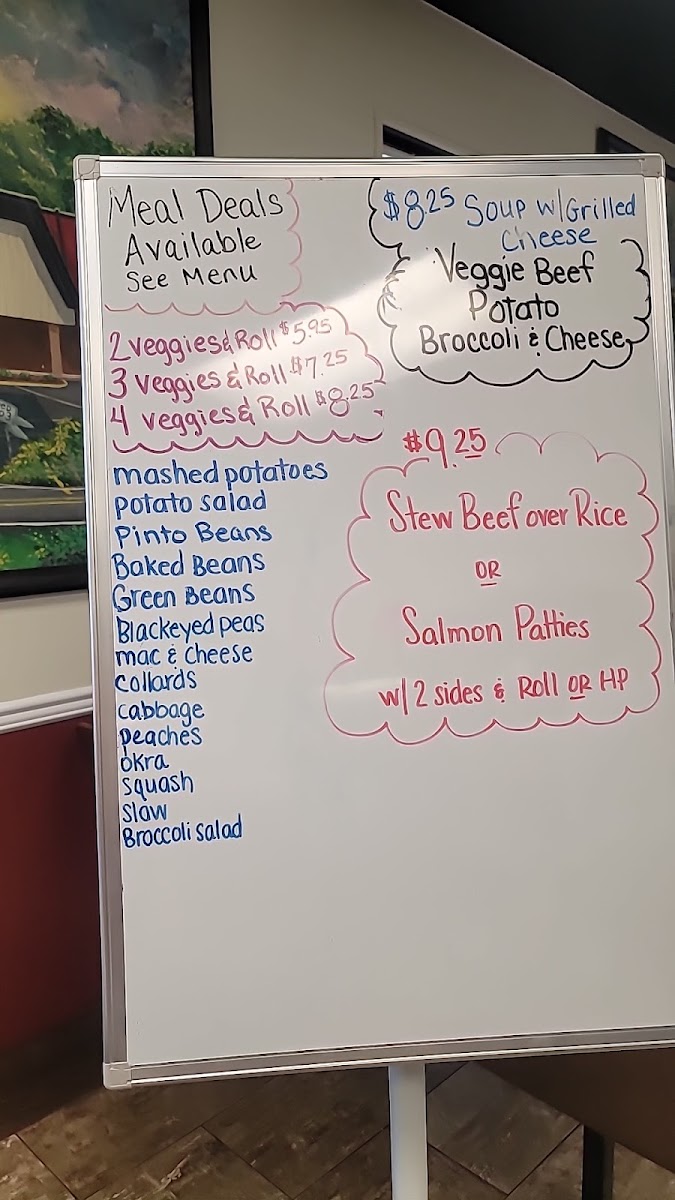 Meal Deals
Available
See Menu
$8.25 Soup w/Grilled
Cheese
Veggie Beef
Potato
Broccoli & Cheese
2 veggies & Roll $5.95
3 veggies & Roll $7.25
4 veggies & Roll $8.25
mashed potatoes
potato salad
Pinto Beans
Baked Beans
Green Beans
Blackeyed peas
mac & cheese
collards
cabbage
peaches
okra
squash
slaw
Broccoli salad
$9.25
Stew Beef over Rice
OR
Salmon Patties
w/2 sides & Roll OR HP